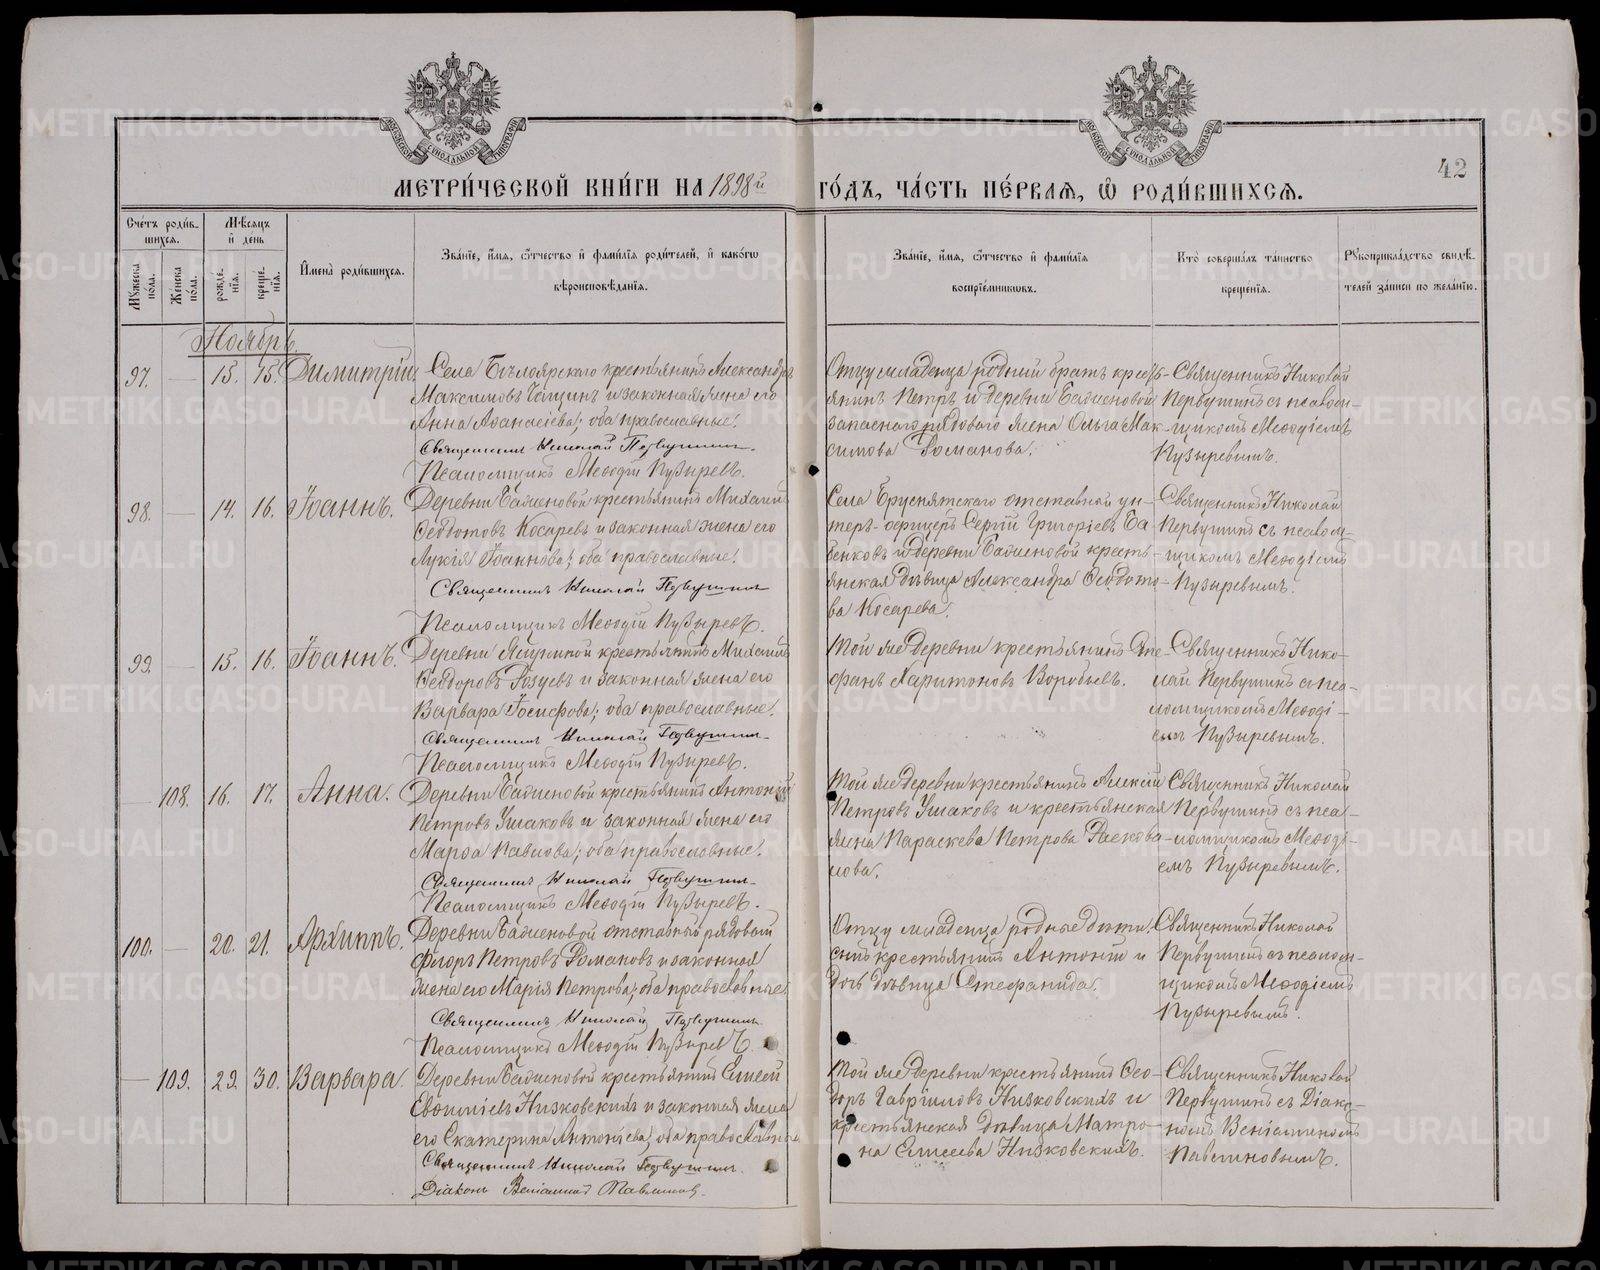 МОСКОВСКОЙ СѴНОДАЛЬНОЙ ТИПОГРАФІИ
МОСКОВСКОЙ СѴНОДАЛЬНОЙ ТИПОГРАФІИ
42
МЕТРИ́ЧЕСКОЙ КНИ́ГИ НА 1898й ГО́ДЪ, ЧА́СТЬ ПЕ́РВАѦ, Ѽ РОДИ́ВШИХСѦ.
Сче́тъ роди́в-
шихся.
Мѣсяцъ
и҆ день
Мꙋжеска по́ла.
Же́нска по́ла.
рожде́-нїя.
креще́-нїя.
И҆мена̀ роди́вшихся.
Зва́нїе, и҆́мя, ѻ҆́тчество и҆ фами́лїя роди́телей, и҆ како́гѡ
вѣроисповѣ́данїя.
Зва́нїе, и҆́мя, ѻ҆́тчество и҆ фами́лїя
воспрїе́мникѡвъ.
Кто̀ соверша́лъ та́инство
креще́нїя.
Рꙋкоприкла́дство свидѣ́-
телей за́писи по жела́нїю.
Ноябрь.
97. — 13. 15. Димитрій.
Села Бѣлоярскаго крестьянинъ Александръ
Максимовъ и законная жена его
Анна Аѳанасіева; оба православные.
Священникъ Николай Первушинъ.
Псаломщикъ Меѳодій Пузыревъ.
Отцу младенца родный братъ кресть-
янинъ Петръ и деревни Баженовой
запаснаго рядового жена Ольга Мак-
симова Романова.
Священникъ Николай
Первушинъ съ псалом-
щикомъ Меѳодіемъ
Пузыревымъ.
98. — 14. 16. Іоаннъ.
Деревни Баженовой крестьянинъ Михаилъ
Ѳедотовъ Косаревъ и законная жена его
Лукія Іоаннова; оба православные.
Священникъ Николай Первушинъ
Псаломщикъ Меѳодій Пузыревъ.
Села Бруснятскаго отставной ун-
теръ-офицеръ Сергій Григоріевъ Ба-
бенковъ и деревни Баженовой кресть-
янская дѣвица Александра Ѳеодото-
ва Косарева.
Священникъ Николай
Первушинъ съ псалом-
щикомъ Меѳодіемъ
Пузыревымъ.
99. — 15. 16. Іоаннъ.
Деревни крестьянинъ Михаилъ
Ѳеодоровъ и законная жена его
Варвара Іосифова; оба православные.
Священникъ Николай Первушинъ.
Псаломщикъ Меѳодій Пузыревъ.
Той же деревни крестьянинъ Епи-
фанъ Харитоновъ Воробьевъ.
Священникъ Нико-
лай Первушинъ съ пса-
ломщикомъ Меѳоді-
емъ Пузыревымъ.
— 108. 16. 17. Анна.
Деревни Баженовой крестьянинъ Антоній
Петровъ Ушаковъ и законная жена его
Марѳа Павлова; оба православные.
Священникъ Николай Первушинъ.
Псаломщикъ Меѳодій Пузыревъ.
Той же деревни крестьянинъ Алексій
Петровъ Ушаковъ и крестьянская
жена Параскева Петрова
Священникъ Николай
Первушинъ съ пса-
ломщикомъ Меѳоді-
емъ Пузыревымъ.
100. — 20. 21. Архиппъ.
Деревни Баженовой отставный рядовый
Флоръ Петровъ Романовъ и законная
жена его Марія Петрова; оба православные.
Священникъ Николай Первушинъ.
Псаломщикъ Меѳодій Пузыревъ.
Отцу младенца родные дѣти:
сынъ крестьянинъ Антоній и
дочь дѣвица Стефанида.
Священникъ Николай
Первушинъ съ псалом-
щикомъ Меѳодіемъ
Пузыревымъ.
— 109. 29. 30. Варвара.
Деревни Баженовой крестьянинъ Елисей
Евѳиміевъ Низковскихъ и законная жена
его Екатерина Антоніева; оба православные
Священникъ Николай Первушинъ.
Діаконъ Веніаминъ Павлиновъ.
Той же деревни крестьянинъ Ѳео-
доръ Гавріиловъ Низковскихъ и
крестьянская дѣвица Матро-
на Елисеева Низковскихъ.
Священникъ Николай
Первушинъ съ Діако-
номъ Веніаминомъ
Павлиновымъ.
METRIKI.GASO-URAL.RU